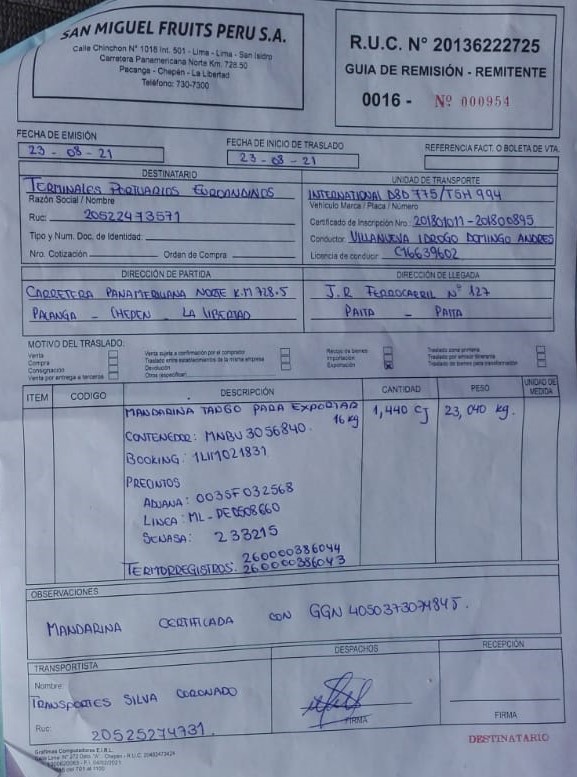 SAN MIGUEL FRUITS PERU S.A.
Calle Chinchon N° 1018 Int. 501 - Lima - Lima - San Isidro
Carretera Panamericana Norte Km. 728.50
Pacanga - Chepén - La Libertad
Teléfono: 730-7300
R.U.C. N° 20136222725
GUIA DE REMISIÓN - REMITENTE
0016 - Nº 000954
FECHA DE EMISIÓN
23 - 08 - 21
FECHA DE INICIO DE TRASLADO
23 - 08 - 21
REFERENCIA FACT. O BOLETA DE VTA.
DESTINATARIO
TERMINALES PORTUARIOS EUROANDINOS
Razón Social / Nombre
Ruc: 20522473571
Tipo y Num. Doc. de Identidad:
Nro. Cotización Orden de Compra
UNIDAD DE TRANSPORTE
INTERNATIONAL D8D 775/T5H 994
Vehículo Marca / Placa / Número
Certificado de Inscripción Nro: 201801011-201800895
Conductor: VILLANUEVA IDROGO DOMINGO ANDRES
Licencia de conducir C16639602
DIRECCIÓN DE PARTIDA
CARRETERA PANAMERICANA NORTE K.M 728.5
PACANGA - CHEPEN - LA LIBERTAD
DIRECCIÓN DE LLEGADA
J.R FERROCARRIL N° 127
PAITA - PAITA
MOTIVO DEL TRASLADO:
Venta
Compra
Consignación
Venta por entrega a terceros
Venta sujeta a confirmación por el comprador
Traslado entre establecimientos de la misma empresa
Devolución
Otros (especificar)
Recojo de bienes
Importación
Exportación X
Traslado zona primaria
Traslado por emisor itinerante
Traslado de bienes para transformación
ITEM CODIGO DESCRIPCIÓN CANTIDAD PESO UNIDAD DE MEDIDA
MANDARINA TANGO PARA EXPORTAR 1,440 CJ 23,040 kg.
16 kg
CONTENEDOR: MNBU 3056840.
BOOKING: 1LIM021831
PRECINTOS
ADUANA: 0035F032568
LINEA: ML-PE0508660
SENASA: 233215
TERMORREGISTROS: 260000386044
260000386043
OBSERVACIONES
MANDARINA CERTIFICADA CON GGN 4050373074845.
TRANSPORTISTA
Nombre:
TRANSPORTES SILVA CORONADO
Ruc: 20525274731.
DESPACHOS
FIRMA
RECEPCIÓN
FIRMA
Grafimax Computadoras E.I.R.L.
DESTINATARIO